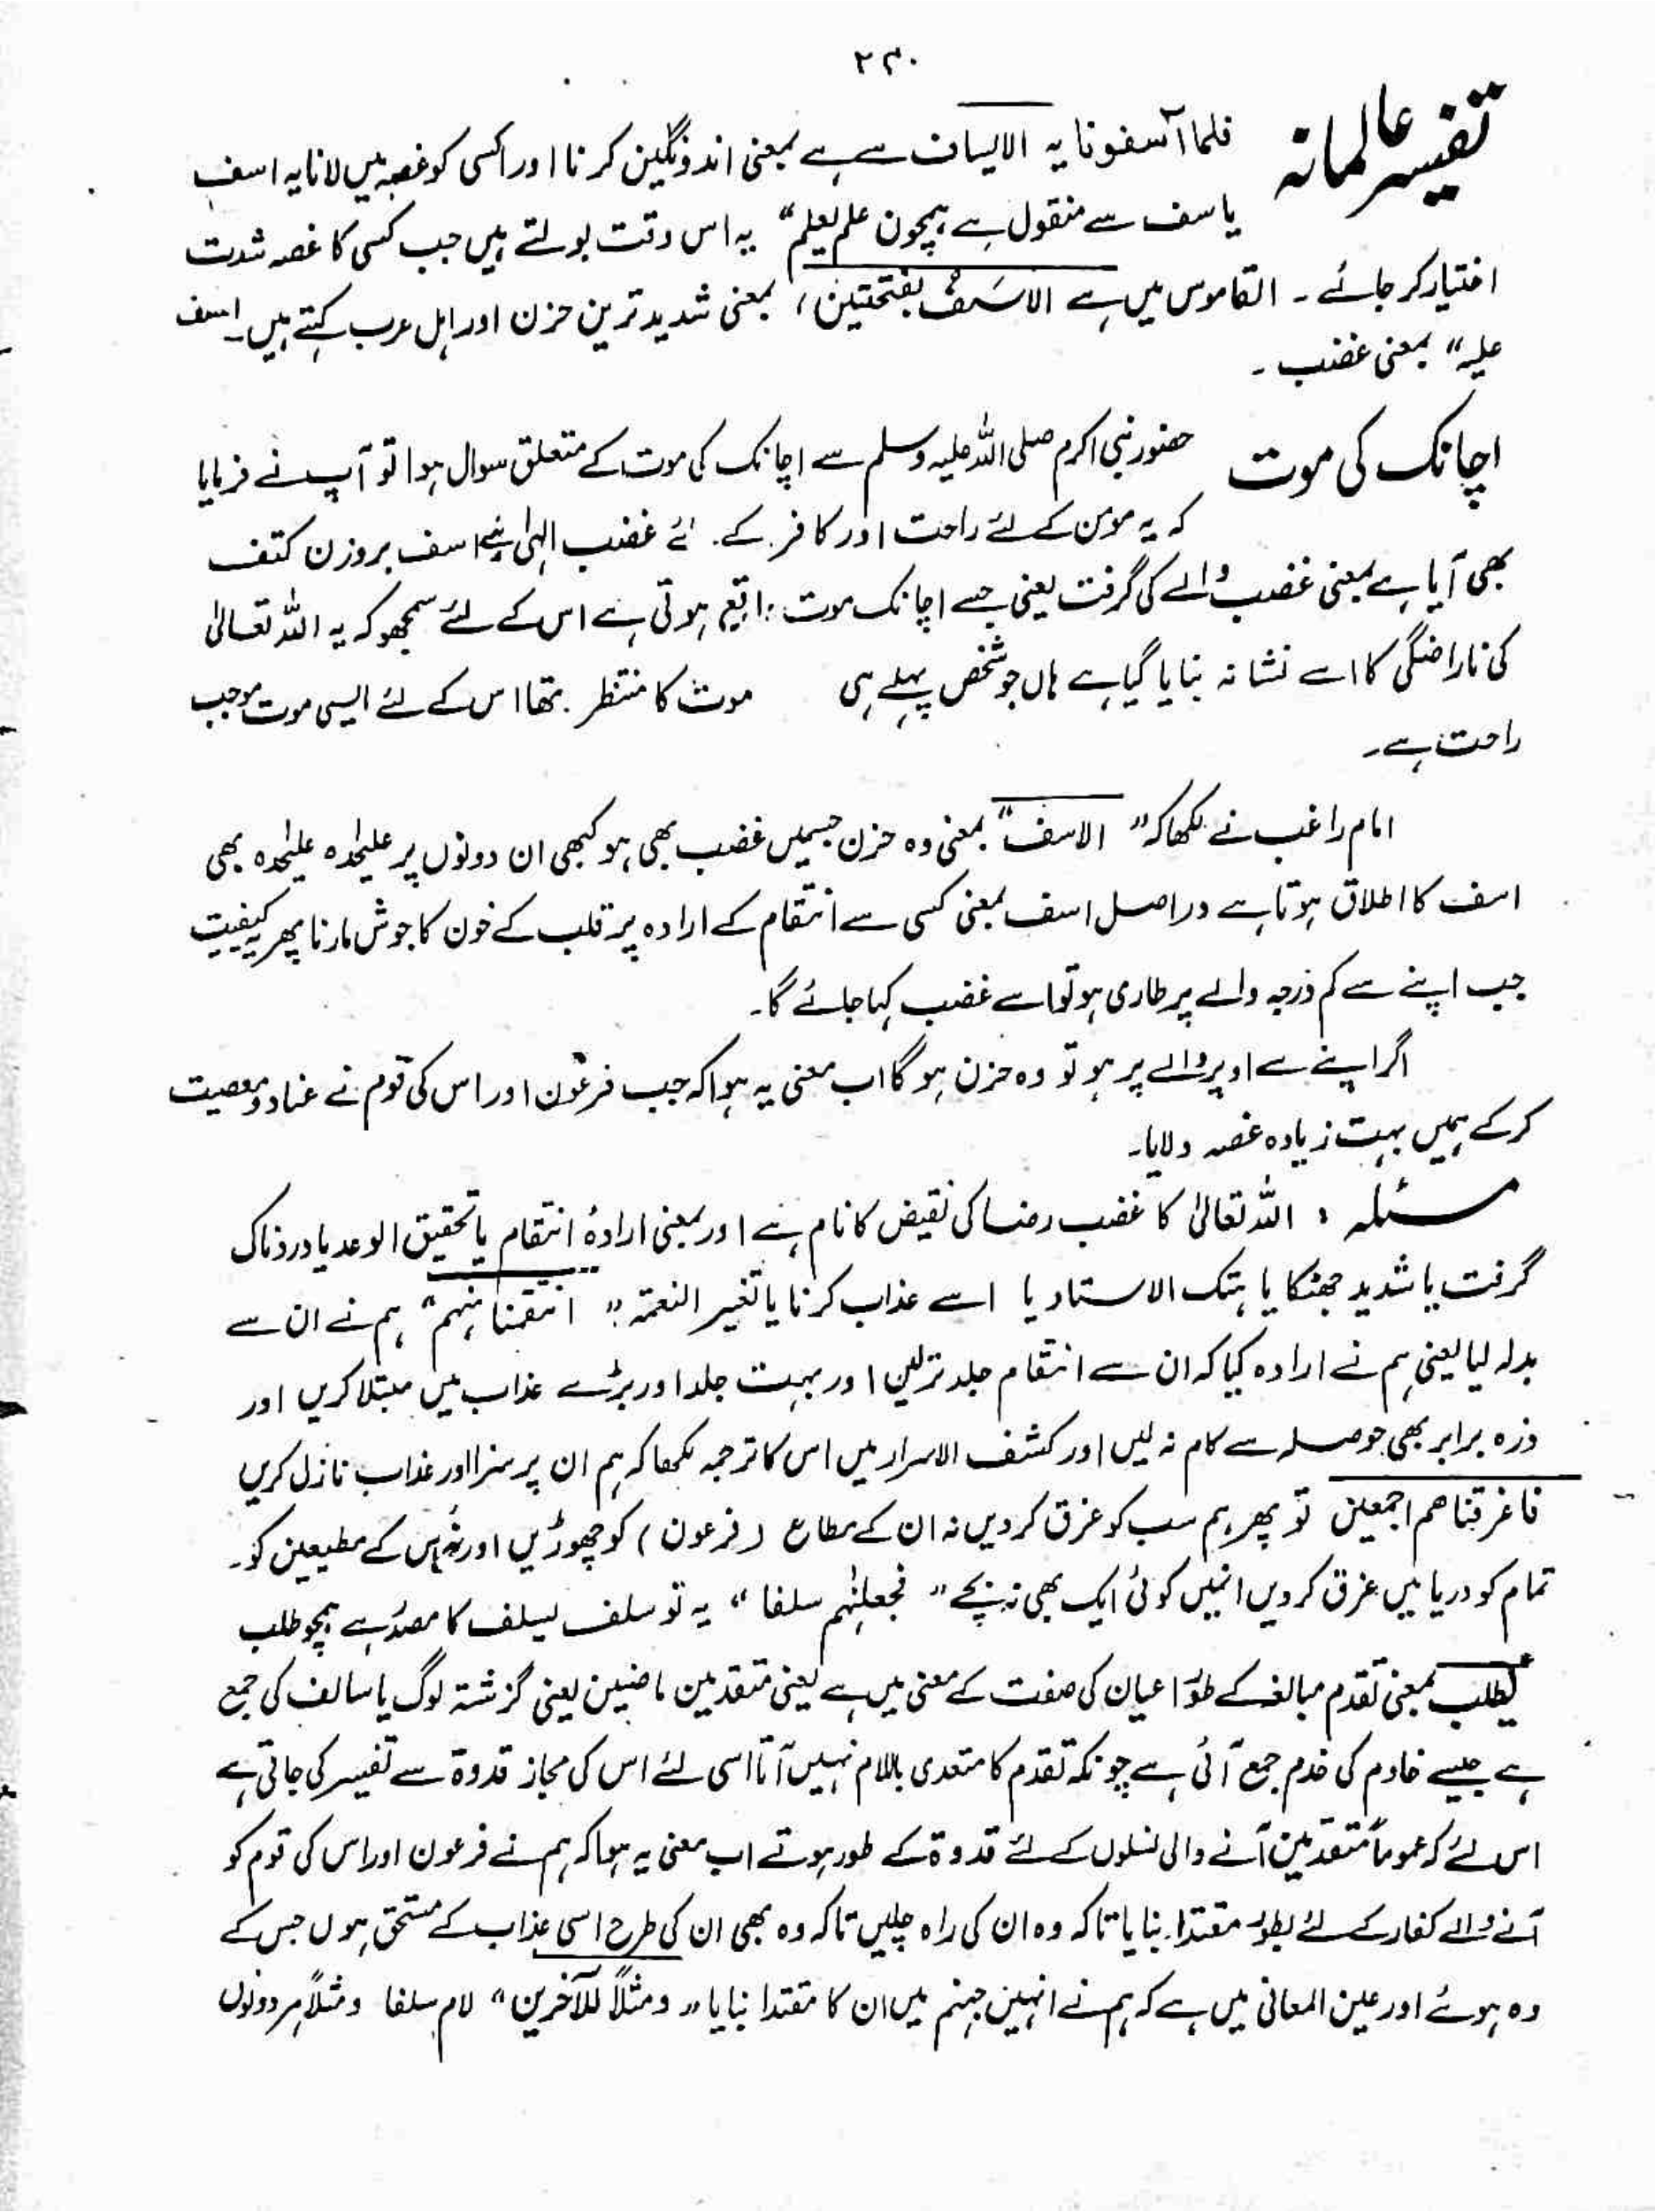 ۲۳۰
تفسیر عالمانہ فلما آسفونا یہ الایساف سے ہے بمعنی اندوہگین کرنا اور کسی کو غصہ میں لانا یہ اسف
یاسف سے منقول ہے ہمچون علم یعلم“ یہ اس وقت بولتے ہیں جب کسی کا غصہ شدت
اختیار کر جائے ۔ القاموس میں ہے الاسَفُ بفتحتین، بمعنی شدید ترین حزن اور اہل عرب کہتے ہیں۔ اسف
علیہ“ بمعنی غضب ۔
اچانک کی موت حضور نبی اکرم صلی اللہ علیہ وسلم سے اچانک کی موت کے متعلق سوال ہوا تو آپ نے فرمایا
کہ یہ مومن کے لئے راحت اور کافر کے لئے غضب الہٰی ہے اسف بروزن کتف
بھی آیا ہے بمعنی غضب والے کی گرفت یعنی جسے اچانک موت واقع ہوتی ہے اس کے لئے سمجھو کہ یہ اللہ تعالیٰ
کی ناراضگی کا اسے نشانہ بنایا گیا ہے ہاں جو شخص پہلے ہی موت کا منتظر تھا اس کے لئے ایسی موت موجب
راحت ہے۔
امام راغب نے لکھا کہ ” الاسف“ بمعنی وہ حزن جسمیں غضب بھی ہو کبھی ان دونوں پر علیٰحدہ علیٰحدہ بھی
اسف کا اطلاق ہوتا ہے دراصل اسف بمعنی کسی سے انتقام کے ارادہ پر قلب کے خون کا جوش مارنا پھر یہ کیفیت
جب اپنے سے کم درجہ والے پر طاری ہو تو اسے غضب کہا جائے گا۔
اگر اپنے سے اوپر والے پر ہو تو وہ حزن ہو گا اب معنی یہ ہوا کہ جب فرعون اور اس کی قوم نے عناد و معصیت
کر کے ہمیں بہت زیادہ غصہ دلایا۔
مسئلہ : اللہ تعالیٰ کا غضب رضا کی نقیض کا نام ہے اور بمعنی ارادۂ انتقام یا تحقیق الوعد یا دردناک
گرفت یا شدید جھٹکا یا ہتک الاستار یا اسے عذاب کرنا یا تغیر النعمۃ ” انتقمنا منہم“ ہم نے ان سے
بدلہ لیا یعنی ہم نے ارادہ کیا کہ ان سے انتقام جلد تر لیں اور بہت جلد اور بڑے عذاب میں مبتلا کریں اور
ذرہ برابر بھی حوصلہ سے کام نہ لیں اور کشف الاسرار میں اس کا ترجمہ لکھا کہ ہم ان پر سزا اور عذاب نازل کریں
فاغرقناھم اجمعین تو پھر ہم سب کو غرق کر دیں نہ ان کے مطاع (فرعون) کو چھوڑیں اور نہ اس کے مطیعین کو۔
تمام کو دریا میں غرق کر دیں انہیں کوئی ایک بھی نہ بچے ” فجعلنٰہم سلفا “ یہ تو سلف یسلف کا مصدر ہے ہمچو طلب
یطلب بمعنی تقدم مبالغہ کے طور اعیان کی صفت کے معنی میں ہے یعنی متقدمین ماضین یعنی گزشتہ لوگ یا سالف کی جمع
ہے جیسے خادم کی خدم جمع آئی ہے چونکہ تقدم کا متعدی باللام نہیں آتا اسی لئے اس کی مجاز قدوۃ سے تفسیر کی جاتی ہے
اس لئے کہ عموماً متقدمین آنے والی نسلوں کے لئے قدوۃ کے طور ہوتے اب معنی یہ ہوا کہ ہم نے فرعون اور اس کی قوم کو
آنے والے کفار کے لئے بطور مقتدا بنایا تاکہ وہ ان کی راہ چلیں تاکہ وہ بھی ان کی طرح اسی عذاب کے مستحق ہوں جس کے
وہ ہوئے اور عین المعانی میں ہے کہ ہم نے انہیں جہنم میں ان کا مقتدا بنایا ” ومثلاً للآخرین“ لام سلفا ومثلاً ہر دونوں